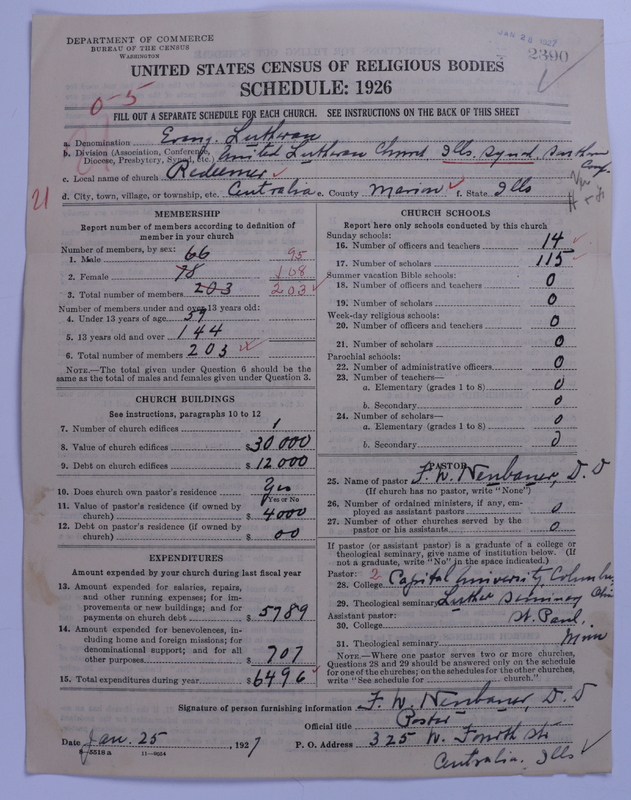 DEPARTMENT OF COMMERCE
BUREAU OF THE CENSUS
WASHINGTON
JAN 28 1927
2390
UNITED STATES CENSUS OF RELIGIOUS BODIES
SCHEDULE: 1926
0-5
FILL OUT A SEPARATE SCHEDULE FOR EACH CHURCH. SEE INSTRUCTIONS ON THE BACK OF THIS SHEET
a. Denomination Evang. Lutheran
b. Division (Association, Conference, Diocese, Presbytery, Synod, etc.) United Lutheran Church Ills. Synod. Southern Conf.
c. Local name of church Redeemer
d. City, town, village, or township, etc. Centralia e. County Marion f. State Ills
21
MEMBERSHIP
Report number of members according to definition of
member in your church
Number of members, by sex:
1. Male 66 95
2. Female 78 108
3. Total number of members 203 203
Number of members under and over 13 years old:
4. Under 13 years of age 59
5. 13 years old and over 144
6. Total number of members 203
NOTE.—The total given under Question 6 should be the
same as the total of males and females given under Question 3.
CHURCH BUILDINGS
See instructions, paragraphs 10 to 12
7. Number of church edifices 1
8. Value of church edifices $30000
9. Debt on church edifices $12000
10. Does church own pastor's residence Yes
Yes or No
11. Value of pastor's residence (if owned by
church) $4000
12. Debt on pastor's residence (if owned by
church) $00
EXPENDITURES
Amount expended by your church during last fiscal year
13. Amount expended for salaries, repairs,
and other running expenses; for im-
provements or new buildings; and for
payments on church debt $5789
14. Amount expended for benevolences, in-
cluding home and foreign missions; for
denominational support; and for all
other purposes $707
15. Total expenditures during year $6496
CHURCH SCHOOLS
Report here only schools conducted by this church
Sunday schools:
16. Number of officers and teachers 14
17. Number of scholars 115
Summer vacation Bible schools:
18. Number of officers and teachers 0
19. Number of scholars 0
Week-day religious schools:
20. Number of officers and teachers 0
21. Number of scholars 0
Parochial schools:
22. Number of administrative officers 0
23. Number of teachers—
a. Elementary (grades 1 to 8) 0
b. Secondary 0
24. Number of scholars—
a. Elementary (grades 1 to 8) 0
b. Secondary 0
PASTOR
25. Name of pastor F. W. Neubauer, D. D
(If church has no pastor, write "None")
26. Number of ordained ministers, if any, em-
ployed as assistant pastors 0
27. Number of other churches served by the
pastor or his assistants 0
If pastor (or assistant pastor) is a graduate of a college or
theological seminary, give name of institution below. (If
not a graduate, write "No" in the space indicated.)
Pastor: 2
28. College Capital University, Columbus Ohio
29. Theological seminary Luther Seminary
Assistant pastor: St. Paul,
30. College
31. Theological seminary Minn
NOTE.—Where one pastor serves two or more churches,
Questions 28 and 29 should be answered only on the schedule
for one of the churches; on the schedules for the other churches,
write "See schedule for church."
Signature of person furnishing information F. W. Neubauer, D. D
Official title Pastor
Date Jan. 25, 1927 P. O. Address 325 W. Fourth Str
8-5518 a 11-9024
Centralia, Ills